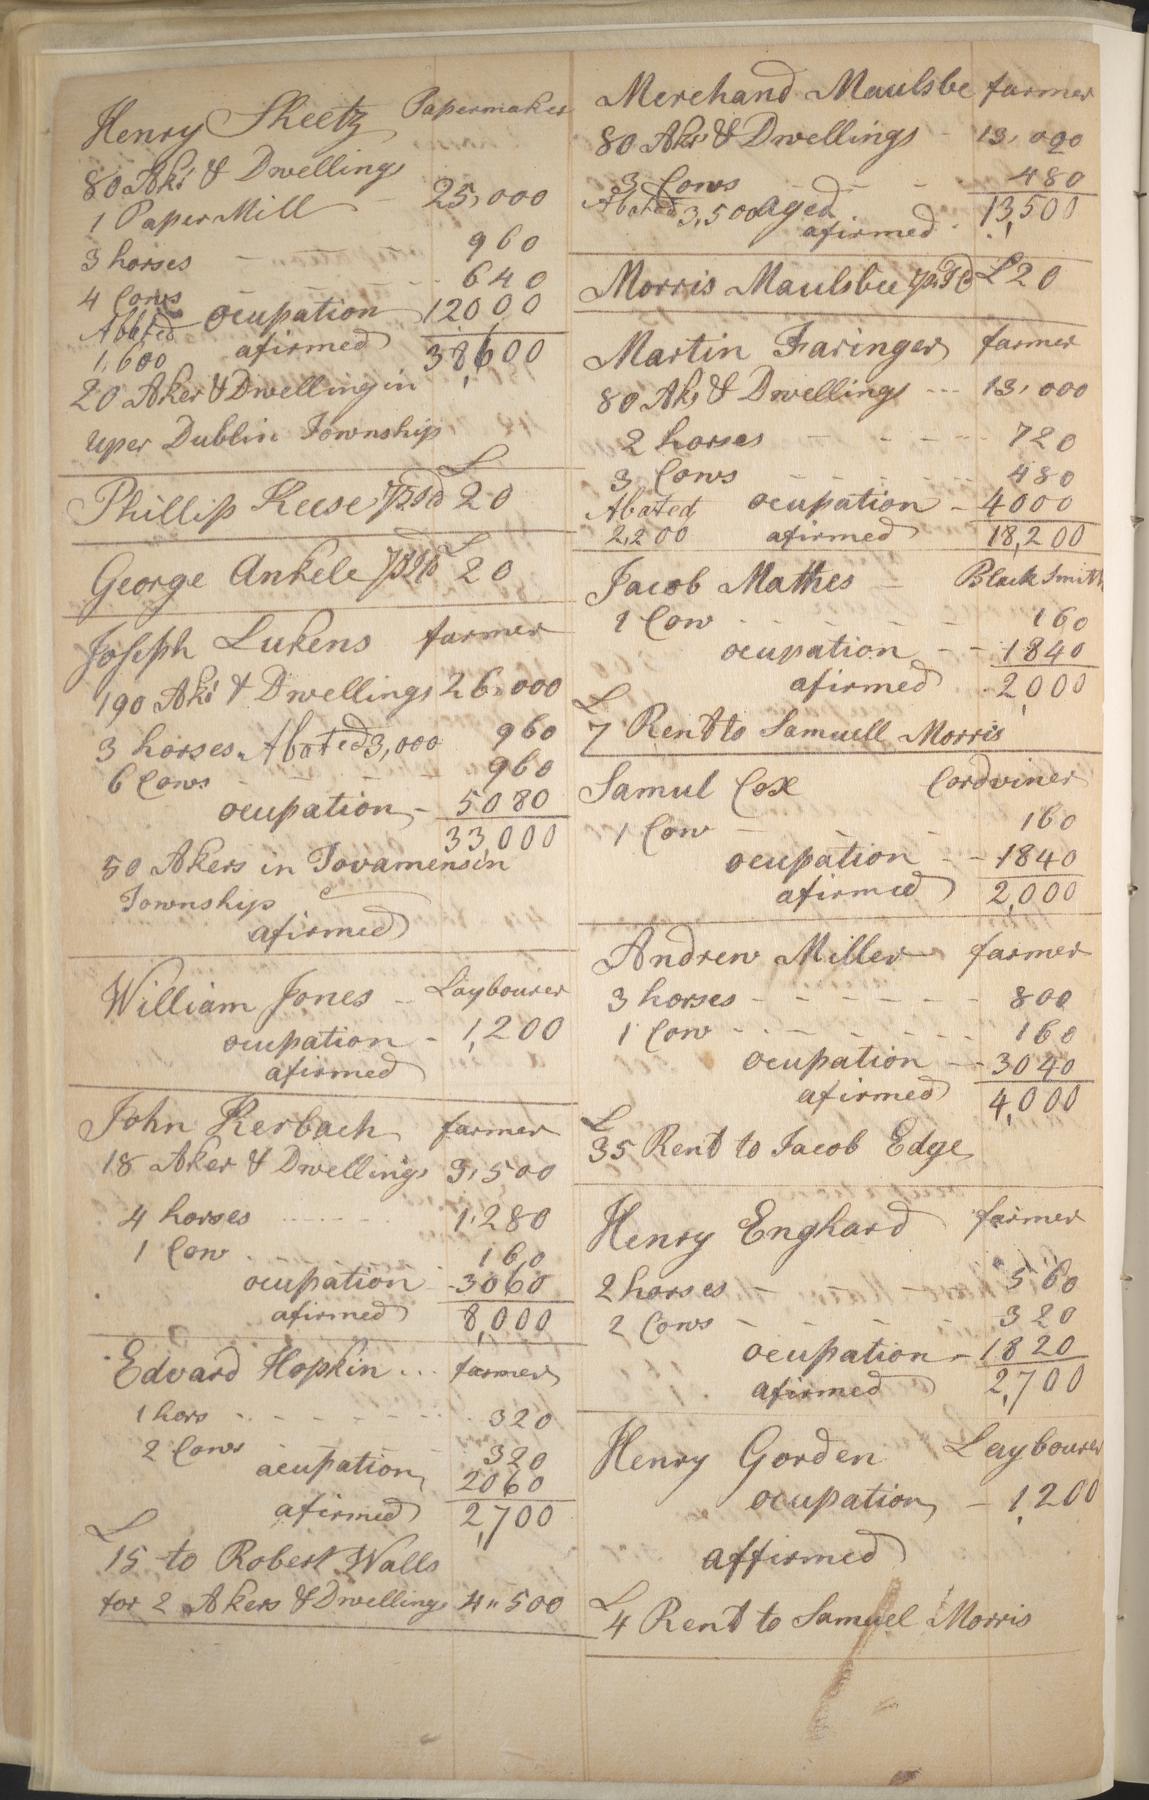 Henry Sheetz Papermaker
80 Aks & Dwellings
1 PaperMill - 25,000
3 horses - 960
4 Cows - 640
Abated ocupation 12000
1,600 afirmed 38,600
20 Aker & Dwelling in
uper Dublin Township
Phillip Keese £ 20
George Ankele £ 20
Joseph Lukens farmer
190 Aks & Dwellings 26,000
3 horses. Abated 3,000 960
6 Cows - 960
ocupation - 5080
33,000
50 Akers in Tovamensin
Township
afirmed
William Jones - Laybourer
ocupation - 1,200
afirmed
John Kerbach farmer
18 Aker & Dwellings 3,500
4 horses 1,280
1 Cow 160
ocupation - 3060
afirmed 8,000
Edvard Hopkin farmer
1 hors 320
2 Cows 320
ocupation 2060
afirmed 2,700
£
15 to Robert Walls
for 2 Akers & Dwellings 4,,500
Merchand Maulsbe farmer
80 Aks & Dwellings - 13,000
3 Cows - 480
Abated 3,500 aged 13,500
afirmed
Morris Maulsbee £20
Martin Faringer farmer
80 Aks & Dwellings - 13,000
2 horses - 720
3 Cows - 480
Abated ocupation - 4000
2,200 afirmed 18,200
Jacob Mathes - Black Smith
1 Cow - 160
ocupation - 1840
afirmed - 2,000
£
7 Rent to Samuell Morris
Samul Cox Cordviner
1 Cow - 160
ocupation - 1840
afirmed 2,000
Andrew Miller farmer
3 horses - 800
1 Cow - 160
ocupation - 3040
afirmed 4,000
£
35 Rent to Jacob Edge
Henry Enghard farmer
2 horses - 560
2 Cows - 320
ocupation - 1820
afirmed 2,700
Henry Gorden Laybourer
ocupation - 1,200
affirmed
£
4 Rent to Samuel Morris